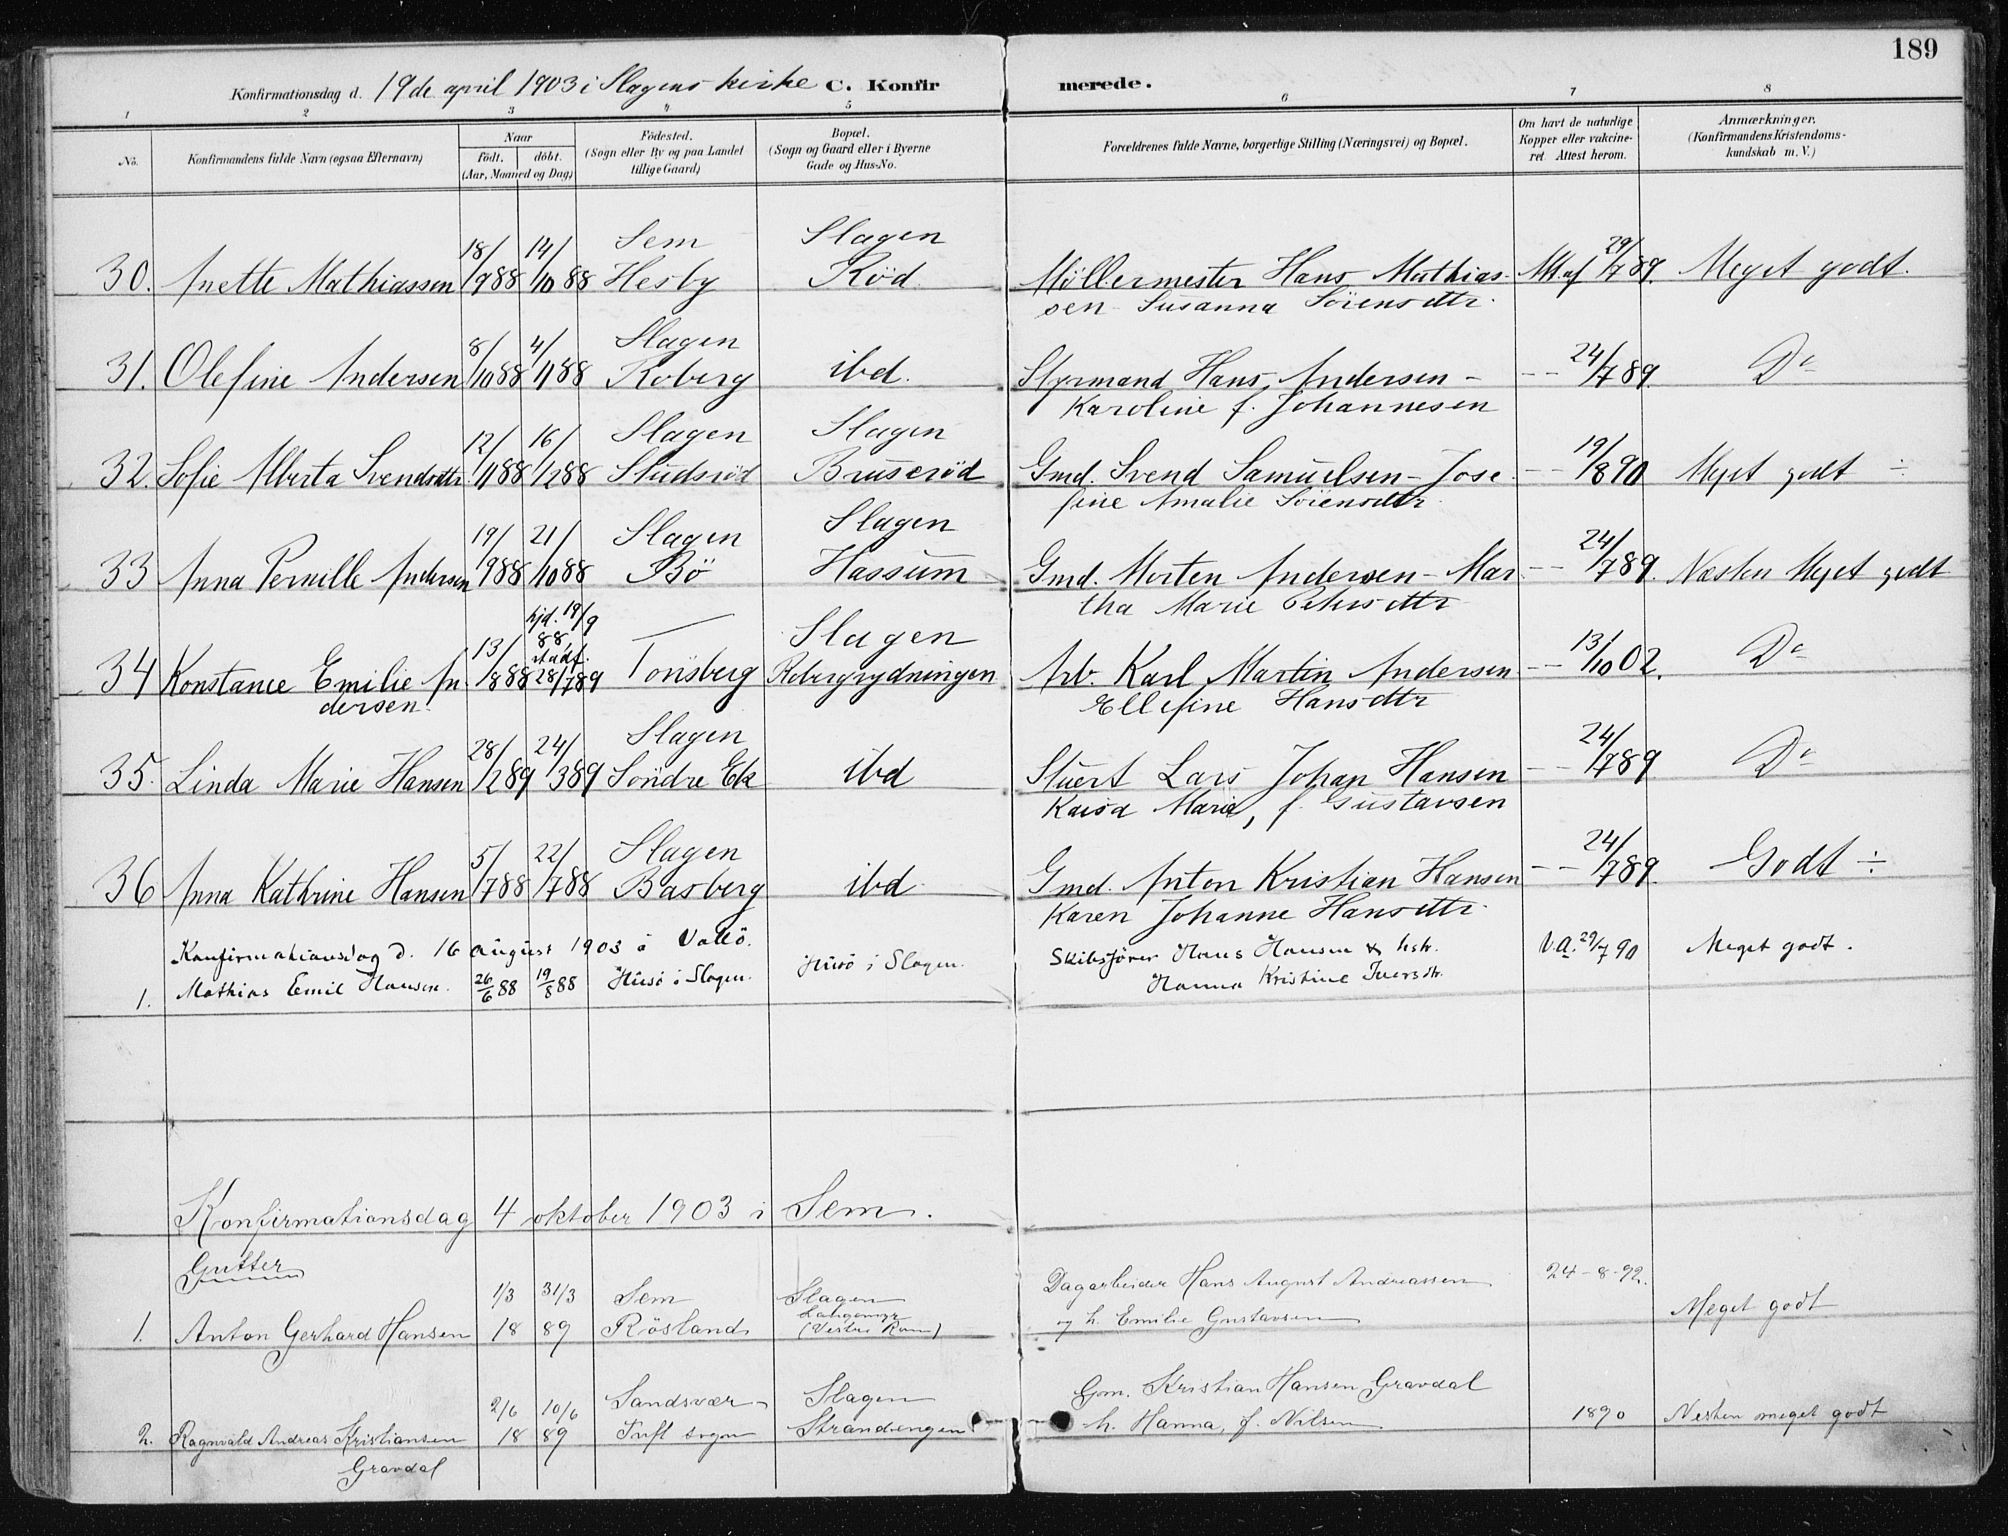 189
Konfirmationsdag d. 19de april 1903 i Slagens kirke C. Konfirmerede.
1 2 3 4 5 6 7 8
No.
Konfirmandens fulde Navn (ogsaa Efternavn)
Naar
født. døbt.
(Aar, Maaned og Dag)
Fødested.
(Sogn eller By og paa Landet
tillige Gaard)
Bopæl.
(Sogn og Gaard eller i Byerne
Gade og Hus-No.
Forældrenes fulde Navne, borgerlige Stilling (Næringsvei) og Bopæl.
Om havt de naturlige
Kopper eller vakcine-
ret. Attest herom.
Anmærkninger.
(Konfirmandens Kristendoms-
kundskab m. V.)
18/ 14/ Sem Slagen 29/
30. Anette Mathiassen /988 /1088 Hesby Rød. Møllermester Hans Mathias- Att. af /789. Meget godt.
sen - Susanna Sörensdtr.
8/ 4/ Slagen
31. Olefine Andersen /1088 /1188 Roberg ibd. Styrmand Hans Andersen - -- 24/789. Do
Karoline f. Johannesen
12/ 16/ Slagen Slagen 19/
32. Sofie Alberta Svendsdtr. /1188 /1288 Studsrød Bruserød Gmd. Svend Samuelsen - Jose -- /890 Meget godt ÷
fine Amalie Sörensdtr
19/ 21/ Slagen Slagen 24/
33 Anna Pernille Andersen /988 /1088 Bö Hassum Gmd. Morten Andersen - Mar -- /789. Næsten Meget godt
tha Marie Petersdtr
hjd. 19/9
88,
13/ stadf. — Slagen 13/
34 Konstance Emilie An- /888 28/789 Tönsberg Robergrydningen Arb. Karl Martin Andersen -- /1002. Do
dersen. Ellefine Hansdtr
28/ 24/ Slagen 24/
35. Linda Marie Hansen /289 /389 Söndre Ek ibd Stuert Lars Johan Hansen -- /789 Do
Kaisa Marie, f. Gustavsen
5/ 22/ Slagen 24/
36 Anna Kathrine Hansen /788 /788 Basberg ibd. Gmd. Anton Kristian Hansen -- /789. Godt ÷
Karen Johanne Hansdtr.
Konfirmationsdag d. 16 august 1903 i Vallö.
1. Mathias Emil Hansen. 26/6 88 19/8 88 Husö i Slagen. Husö i Slagen. Skibsfører Hans Hansen & hstr. V.A. 29/7 90 Meget godt.
Hanna Kristine Iversdtr.
Konfirmationsdag 4 oktober 1903 i Sem.
Gutter
1/3 31/3 Sem Slagen Dagarbeider Hans August Andreassen 24-8-92.
1. Anton Gerhard Hansen 18 89 Røsland (Vestre Ram) og h. Emilie Gustavsen Meget godt
2/6 10/6 Sandsvær Slagen Gm. Kristian Hansen Gravdal
2. Ragnvald Andreas Kristiansen 18 89 Tuft sogn Strandengen h. Hanna, f. Nilsen 1890 Nesten meget godt
Gravdal